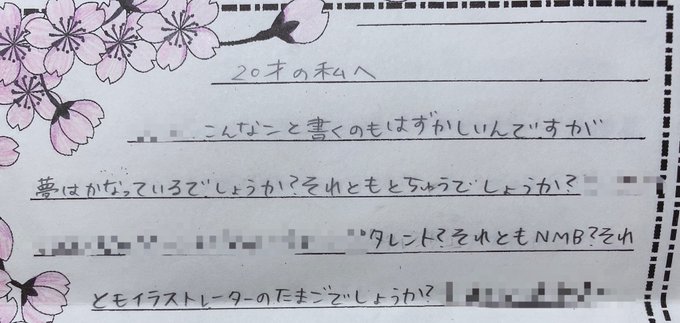 20才の私へ
こんなこと書くのもはずかしいんですが
夢はかなっているでしょうか?それともとちゅうでしょうか?
タレント?それともNMB?それ
ともイラストレーターのたまごでしょうか?